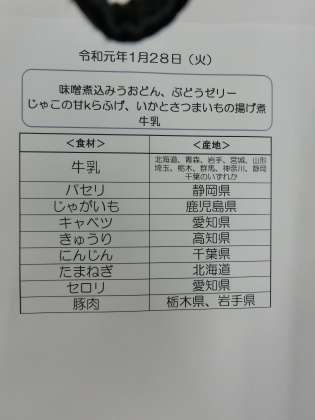 令和元年1月28日（火）
味噌煮込みうおどん、ぶどうゼリー
じゃこの甘kらふげ、いかとさつまいもの揚げ煮
牛乳
＜食材＞ ＜産地＞
牛乳 北海道、青森、岩手、宮城、山形
埼玉、栃木、群馬、神奈川、静岡
千葉のいずれか
パセリ 静岡県
じゃがいも 鹿児島県
キャベツ 愛知県
きゅうり 高知県
にんじん 千葉県
たまねぎ 北海道
セロリ 愛知県
豚肉 栃木県、岩手県